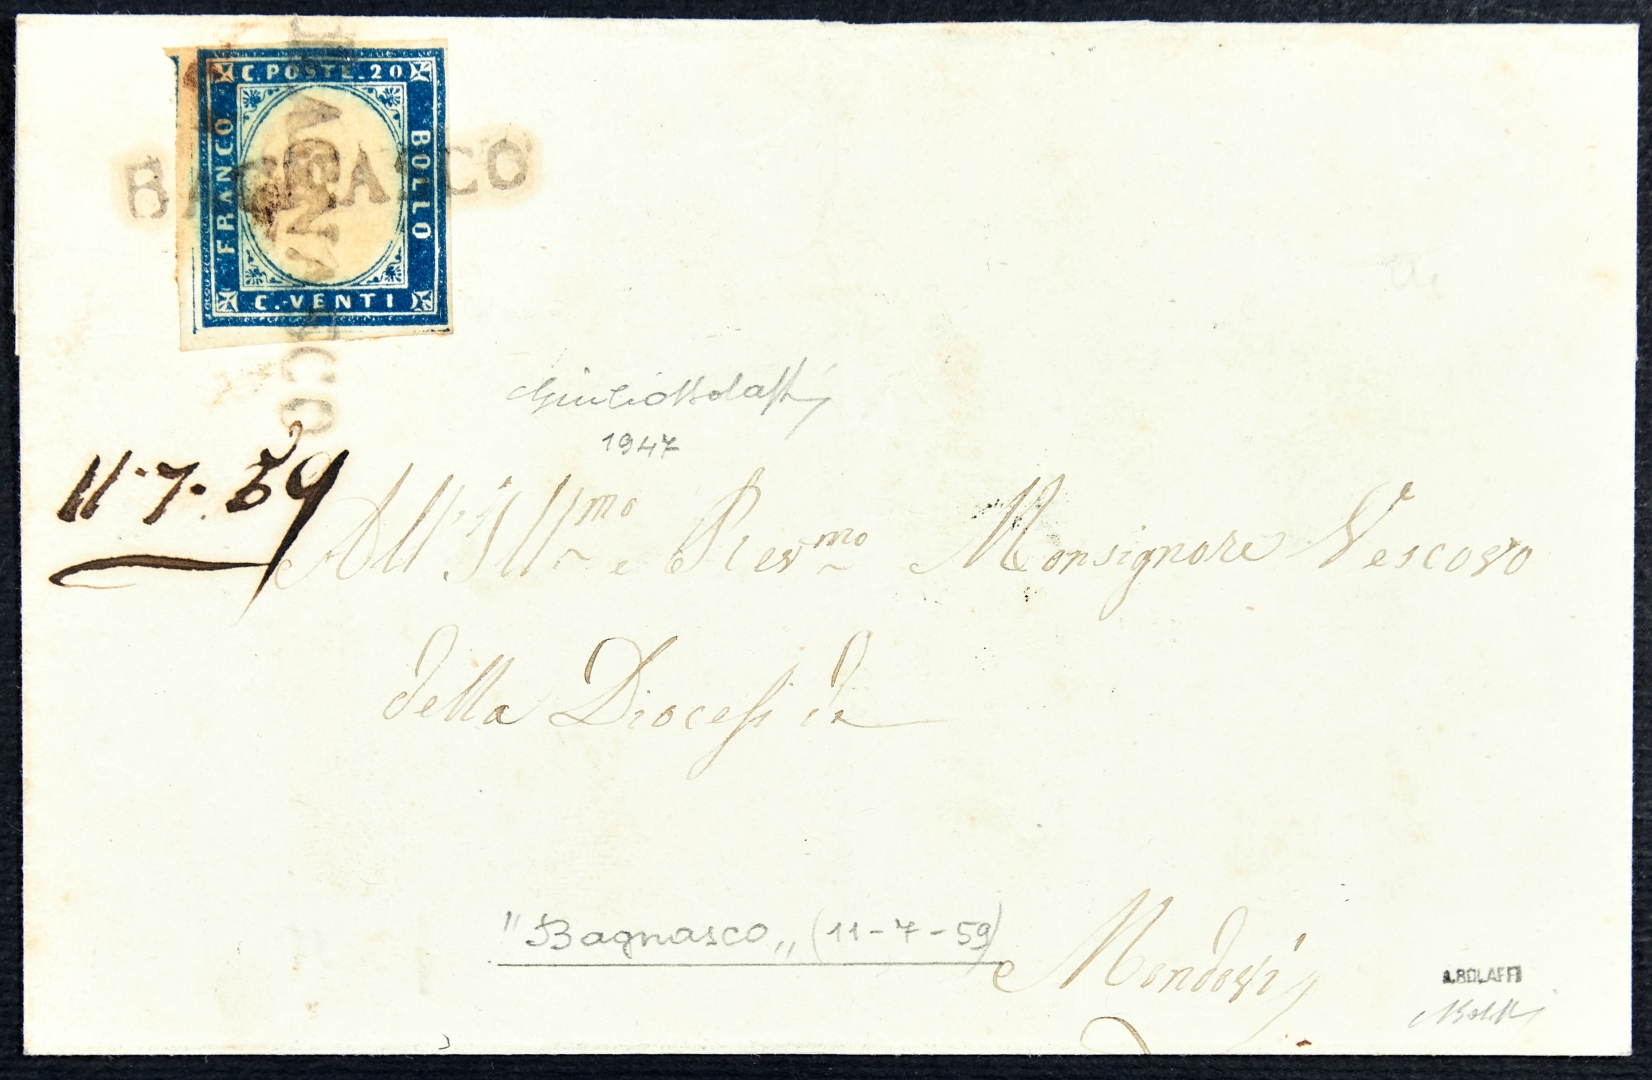 C. POSTE. 20
FRANCO
BOLLO
C. VENTI
BAGNASCO
BAGNASCO
Giulio Bolaffi
1947
11·7·59
All'Ill.mo e Rev.mo Monsignore Vescovo
della Diocesi di
"Bagnasco" (11-7-59)
Mondovi
A.BOLAFFI